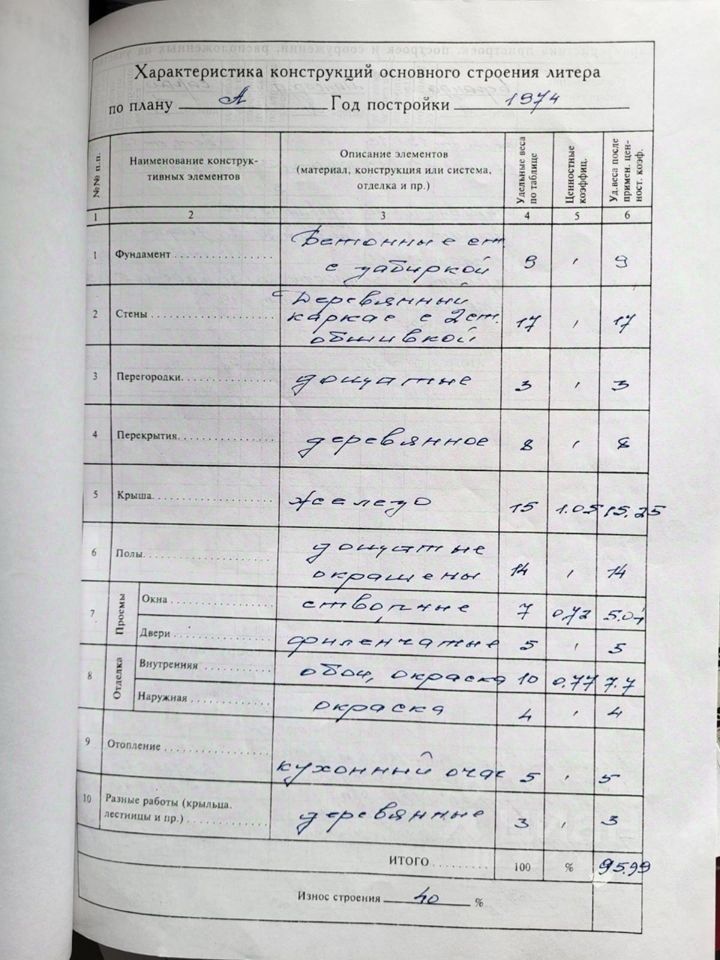 Характеристика конструкций основного строения литера
по плану А Год постройки 1974
№№ п.п.
Наименование конструк-
тивных элементов
Описание элементов
(материал, конструкция или система,
отделка и пр.)
Удельные веса
по таблице
Ценностные
коэффиц.
Уд.веса после
примен. цен-
ност. коэф.
1 2 3 4 5 6
1 Фундамент Бетонные ст.
с забиркой 9 1 9
2 Стены Деревянный
каркас с 2ст.
обшивкой 17 1 17
3 Перегородки дощатые 3 1 3
4 Перекрытия деревянное 8 1 8
5 Крыша железо 15 1.05 15.25
6 Полы дощатые
окрашены 14 1 14
7 Проемы Окна створчные 7 0.72 5.04
Двери филенчатые 5 1 5
8 Отделка Внутренняя обои, окраска 10 0.77 7.7
Наружная окраска 4 1 4
9 Отопление кухонный очаг 5 1 5
10 Разные работы (крыльца.
лестницы и пр.) деревянные 3 1 3
ИТОГО 100 % 95.99
Износ строения 40 %